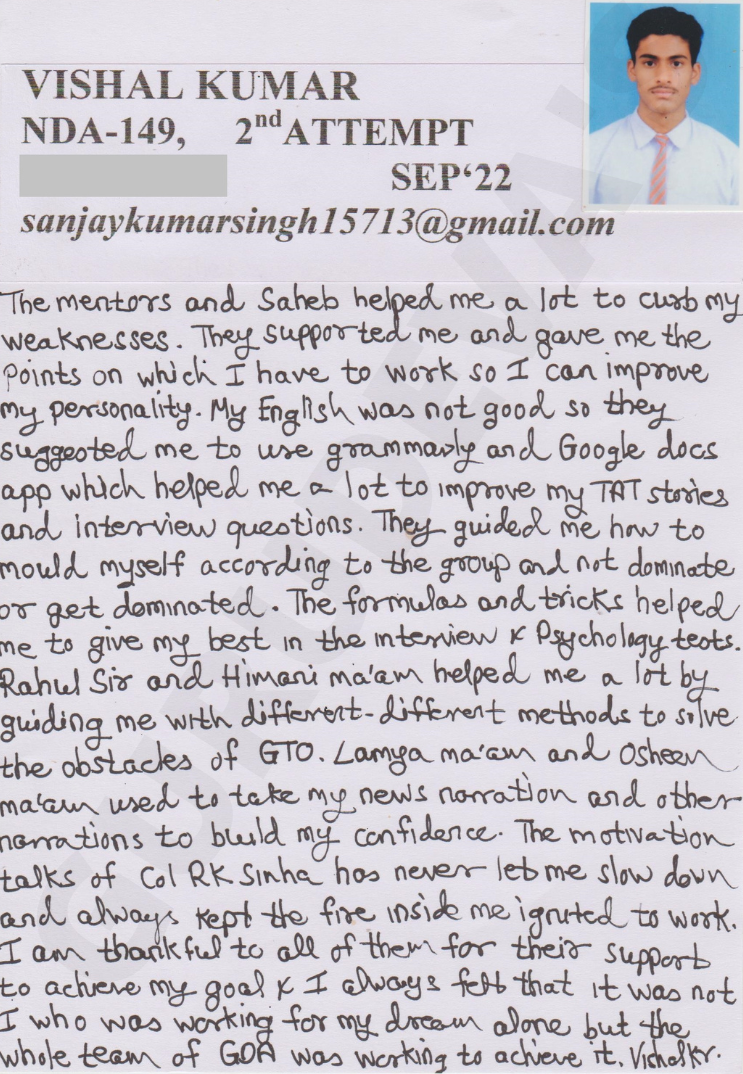 VISHAL KUMAR
NDA-149, 2nd ATTEMPT
SEP‘22
sanjaykumarsingh15713@gmail.com
The mentors and Saheb helped me a lot to curb my
weaknesses. They supported me and gave me the
Points on which I have to work so I can improve
my personality. My English was not good so they
suggested me to use grammarly and Google docs
app which helped me a lot to improve my TAT stories
and interview questions. They guided me how to
mould myself according to the group and not dominate
or get dominated. The formulas and tricks helped
me to give my best in the interview & Psychology tests.
Rahul Sir and Himani ma'am helped me a lot by
guiding me with different-different methods to solve
the obstacles of GTO. Lamya ma'am and Osheen
ma'am used to take my news narration and other
narrations to build my confidence. The motivation
talks of Col RK Sinha has never let me slow down
and always kept the fire inside me ignited to work.
I am thankful to all of them for their support
to achieve my goal & I always felt that it was not
I who was working for my dream alone but the
whole team of GDA was working to achieve it. Vishal Kr.